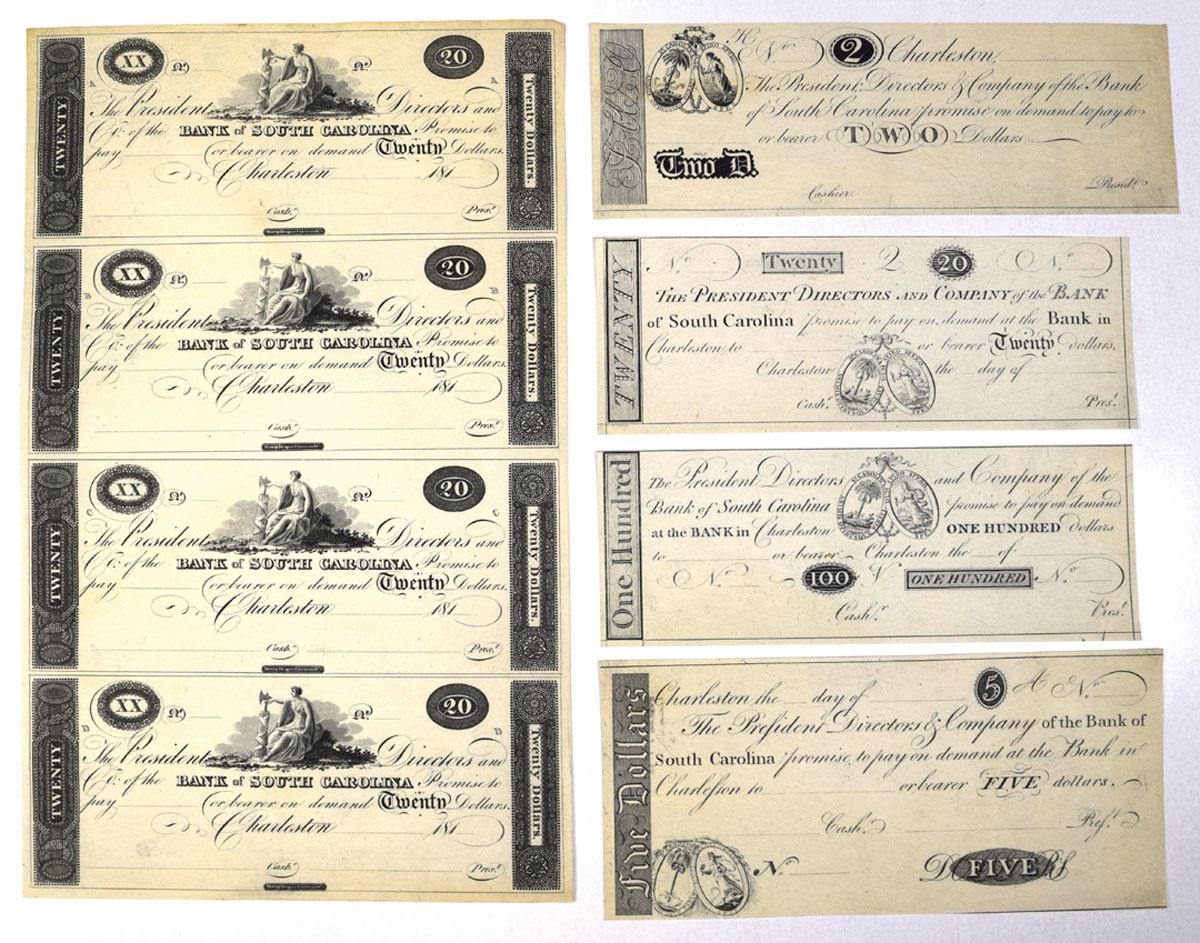 TWENTY
XX
No
No
20
A
A
Twenty Dollars.
The President Directors and
Co: of the BANK of SOUTH CAROLINA Promise to
pay or bearer on demand Twenty Dollars.
Charleston 181
Cash.r Pres.t
TWENTY
XX
No
No
20
B
B
Twenty Dollars.
The President Directors and
Co: of the BANK of SOUTH CAROLINA Promise to
pay or bearer on demand Twenty Dollars.
Charleston 181
Cash.r Pres.t
TWENTY
XX
No
No
20
C
C
Twenty Dollars.
The President Directors and
Co: of the BANK of SOUTH CAROLINA Promise to
pay or bearer on demand Twenty Dollars.
Charleston 181
Cash.r Pres.t
TWENTY
XX
No
No
20
D
D
Twenty Dollars.
The President Directors and
Co: of the BANK of SOUTH CAROLINA Promise to
pay or bearer on demand Twenty Dollars.
Charleston 181
Cash.r Pres.t
K No 2 Charleston,
The President, Directors & Company of the Bank
of South Carolina promise on demand to pay to
or bearer TWO Dollars
Two D.
Cashier Presid.t
TWENTY
No Twenty 2 20 No
THE PRESIDENT DIRECTORS AND COMPANY of the BANK
of South Carolina promise to pay on demand at the Bank in
Charleston to or bearer Twenty dollars,
Charleston the day of
Cash.r Pres.t
One Hundred
The President Directors and Company of the
Bank of South Carolina promise to pay on demand
at the BANK in Charleston ONE HUNDRED dollars
to or bearer Charleston the of
No 100 ONE HUNDRED No
Cash.r Pres.t
Five Dollars
Charleston the day of 5 A No
The Prefident Directors & Company of the Bank of
South Carolina promise to pay on demand at the Bank in
Charlefton to or bearer FIVE dollars.
Cash.r Pref.t
No DO FIVE RS